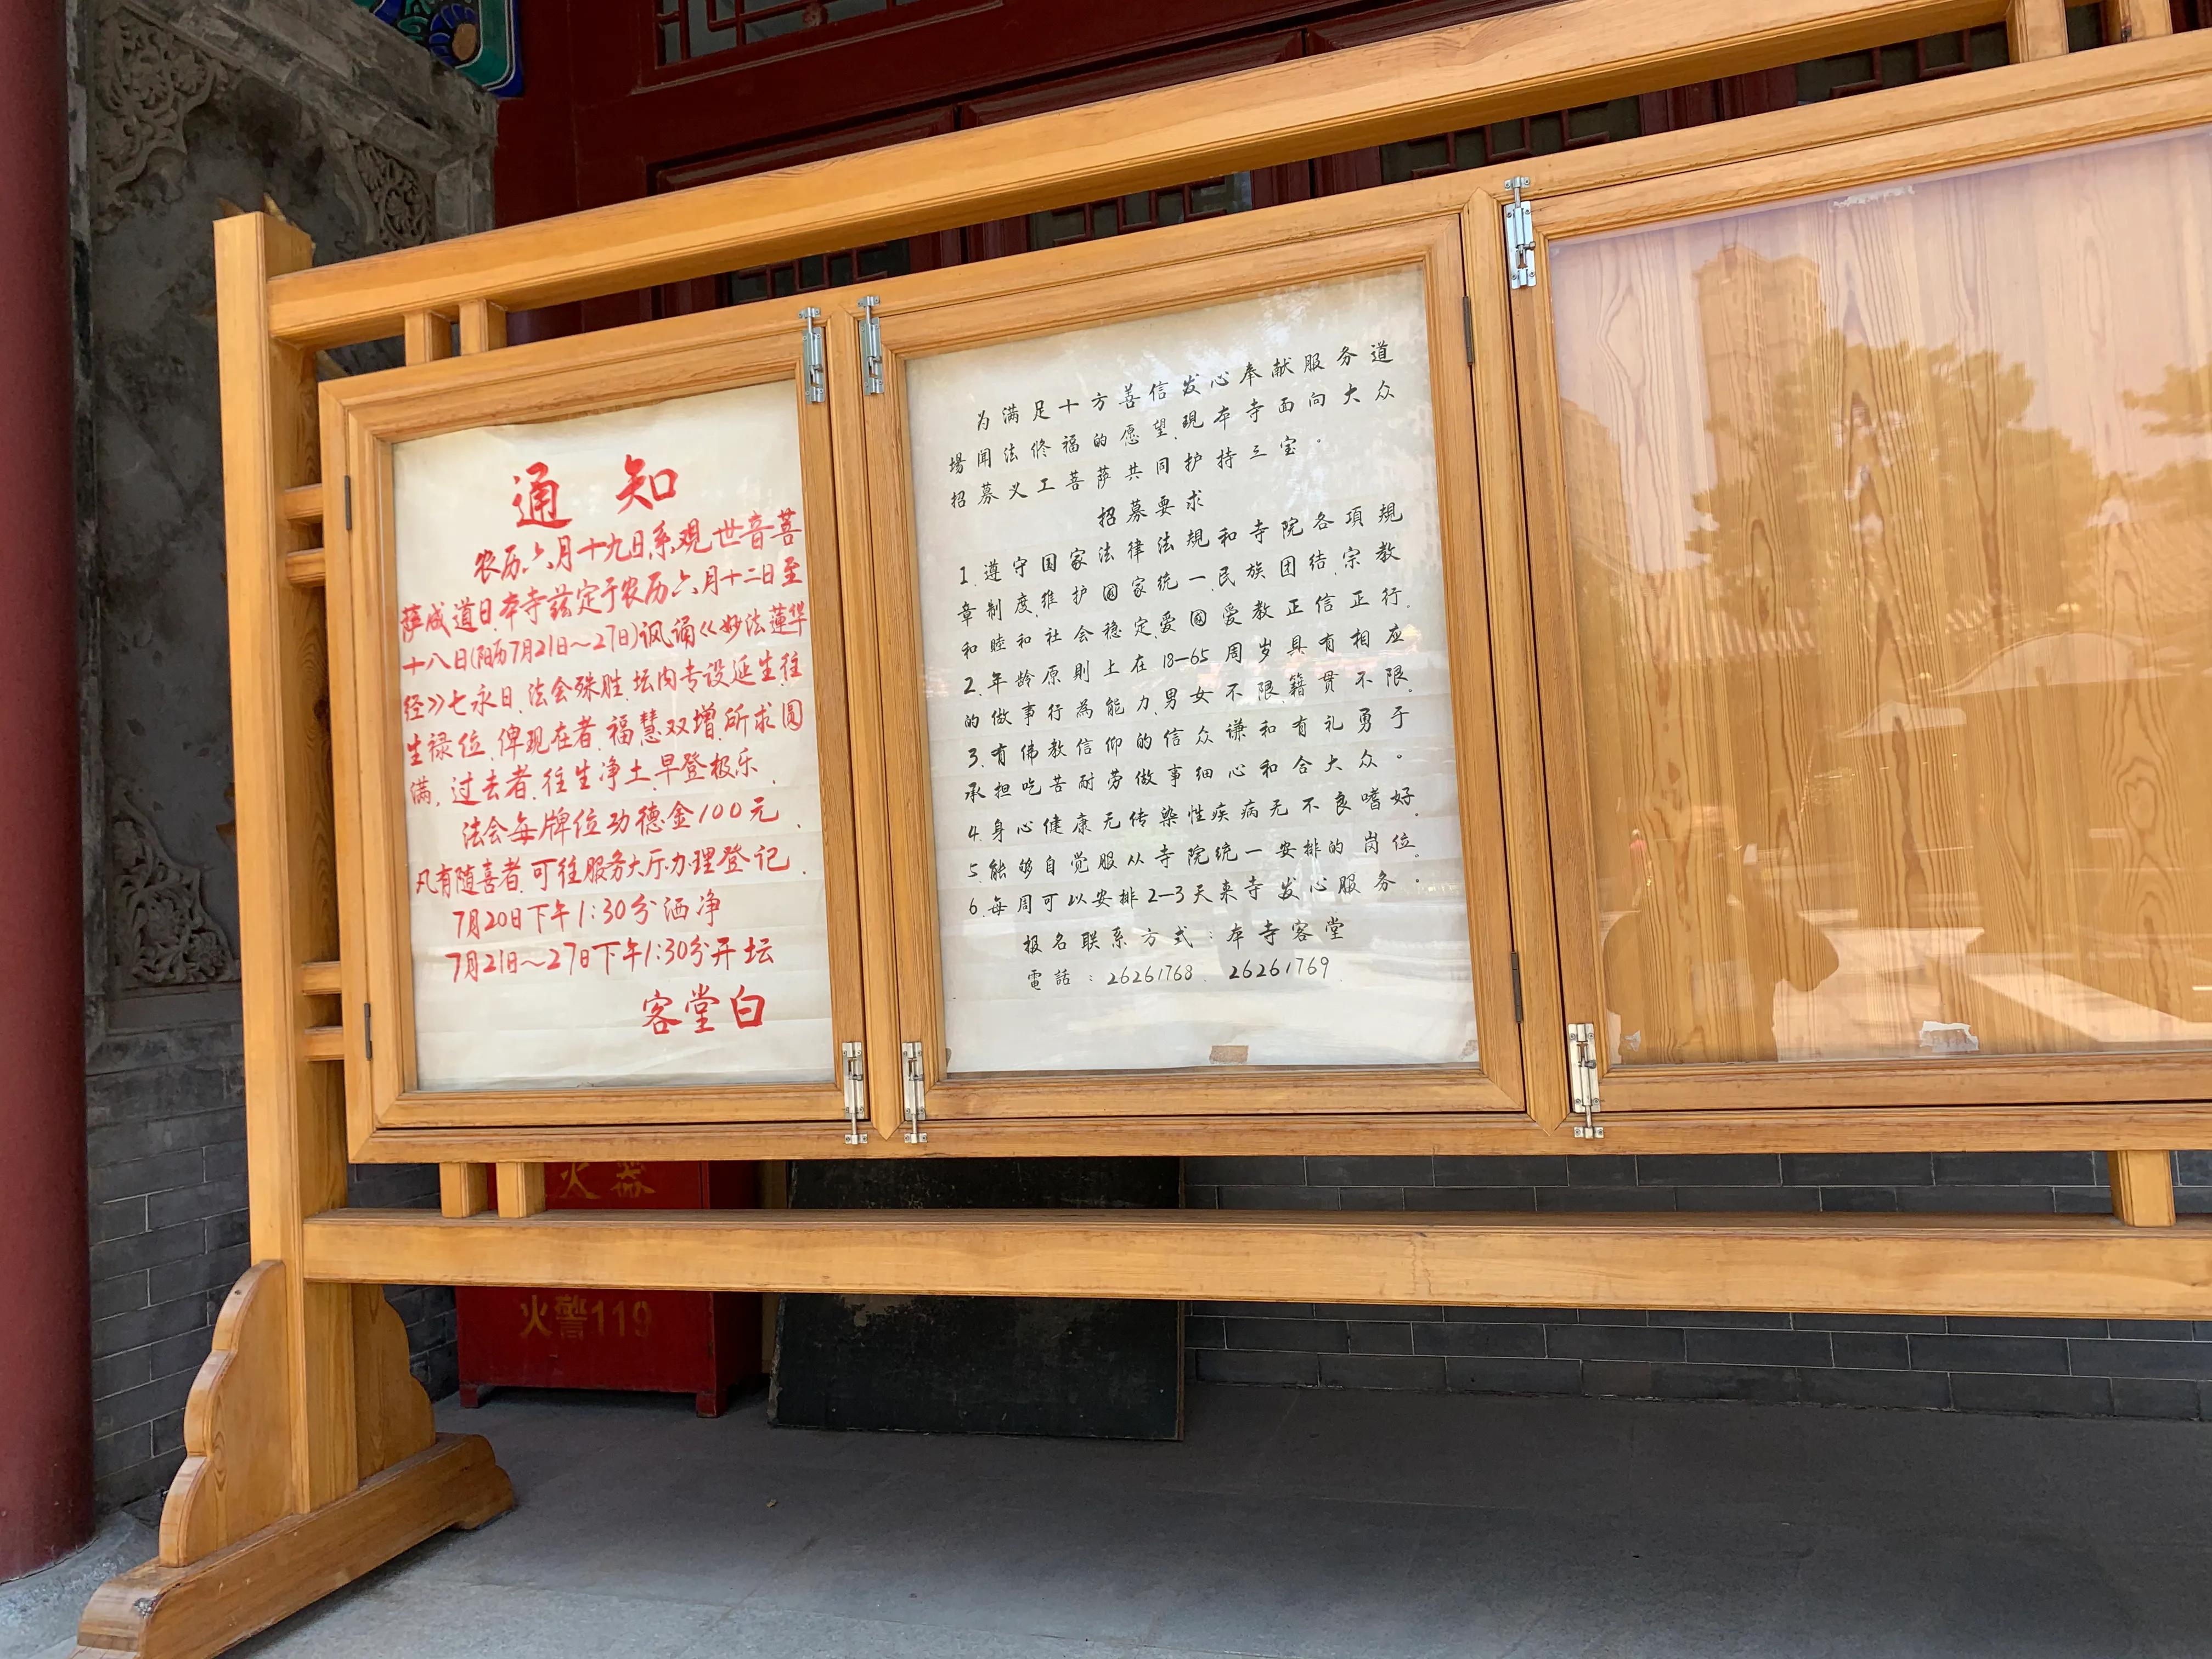 通知
农历六月十九日系观世音菩
萨成道日,本寺兹定于农历六月十二日至
十八日(阳历7月21日～27日)讽诵《妙法蓮华
经》七永日.法会殊胜.坛内专设延生.往
生禄位.俾现在者.福慧双增.所求圆
满.过去者.往生净土.早登极乐.
法会每牌位功德金100元.
凡有随喜者.可往服务大厅办理登记.
7月20日下午1:30分洒净
7月21日～27日下午1:30分开坛
客堂白
为满足十方善信发心奉献服务道
場闻法修福的愿望.現本寺面向大众
招募义工菩萨共同护持三宝。
招募要求
1.遵守国家法律法規和寺院各項規
章制度.维护國家统一.民族团结.宗教
和睦和社会稳定.爱國爱教正信正行.
2.年龄原則上在18—65周岁具有相应
的做事行為能力.男女不限.籍贯不限.
3.有佛教信仰的信众谦和有礼勇于
承担吃苦耐劳做事细心和合大众。
4.身心健康无传染性疾病无不良嗜好.
5.能够自觉服从寺院统一安排的岗位.
6.每周可以安排2—3天来寺发心服务。
报名联系方式:本寺客堂
電話:26261768. 26261769.
火器
火警119